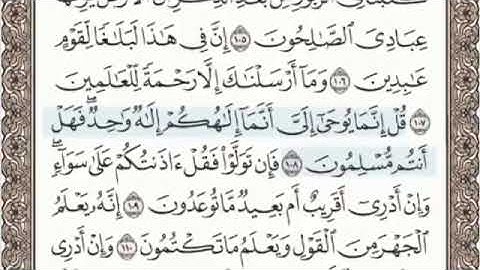 عِبَادِىَ ٱلصَّٰلِحُونَ ١٠٥ إِنَّ فِى هَٰذَا لَبَلَٰغًا لِّقَوْمٍ
عَٰبِدِينَ ١٠٦ وَمَآ أَرْسَلْنَٰكَ إِلَّا رَحْمَةً لِّلْعَٰلَمِينَ
١٠٧ قُلْ إِنَّمَا يُوحَىٰٓ إِلَىَّ أَنَّمَآ إِلَٰهُكُمْ إِلَٰهٌ وَٰحِدٌ ۖ فَهَلْ
أَنتُم مُّسْلِمُونَ ١٠٨ فَإِن تَوَلَّوْا۟ فَقُلْ ءَاذَنتُكُمْ عَلَىٰ سَوَآءٍ ۖ
وَإِنْ أَدْرِىٓ أَقَرِيبٌ أَم بَعِيدٌ مَّا تُوعَدُونَ ١٠٩ إِنَّهُۥ يَعْلَمُ
ٱلْجَهْرَ مِنَ ٱلْقَوْلِ وَيَعْلَمُ مَا تَكْتُمُونَ ١١٠ وَإِنْ أَدْرِى